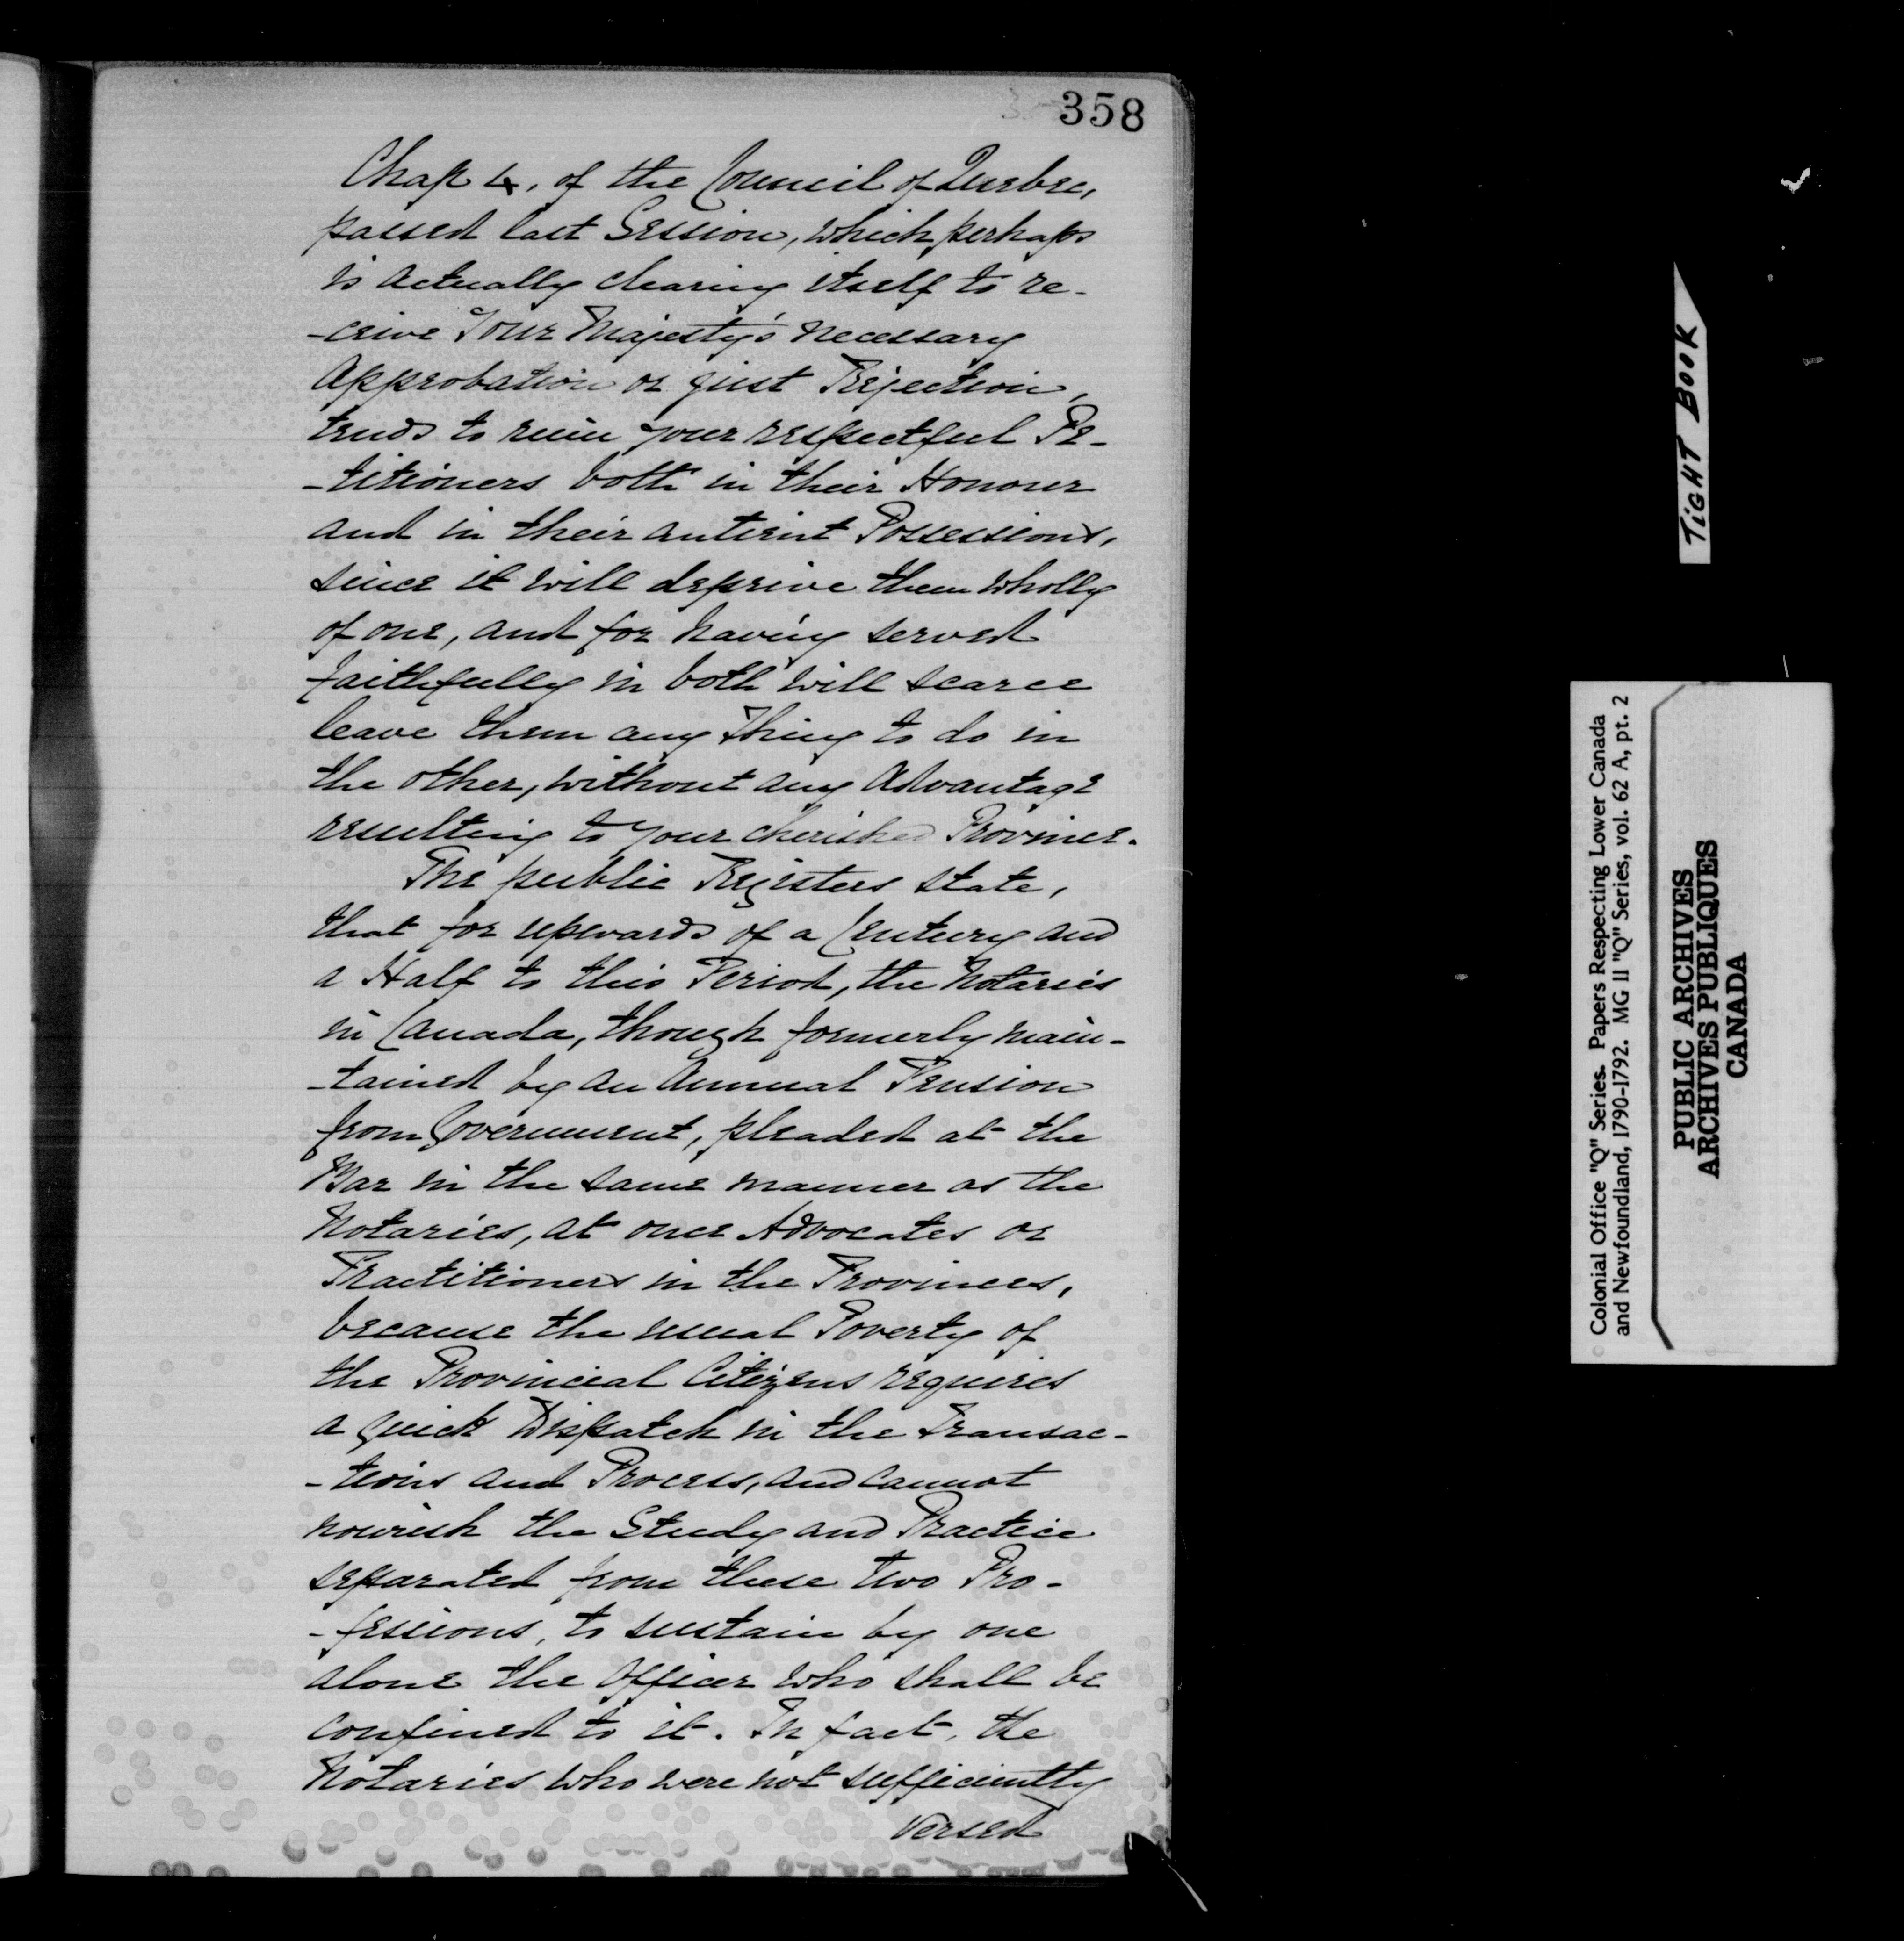 358
Chap 4, of the Council of Quebec,
passed last Session, which perhaps
is actually clearing itself to re-
-ceive Your Majesty's necessary
Approbation or just Rejection,
tends to ruin your respectful Pe-
-titioners both in their Honour
and in their antient Possessions,
since it will deprive them wholly
of one, and for having served
faithfully in both will scarce
leave them any Thing to do in
the other, without any Advantage
resulting to your cherished Province.
The public Registers state,
that for upwards of a Century and
a Half to this Period, the Notaries
in Canada, though formerly main-
-tained by an Annual Pension
from Government, pleaded at the
Bar in the same manner as the
Notaries, at once Advocates or
Practitioners in the Provinces,
because the usual Poverty of
the Provincial Citizens requires
a quick Dispatch in the Transac-
-tions and Process, and cannot
nourish the Study and Practice
separated from these two Pro-
-fessions, to sustain by one
alone the Officer who shall be
confined to it. In fact, the
Notaries who were not sufficiently
versed
TIGHT BOOK
Colonial Office "Q" Series. Papers Respecting Lower Canada
and Newfoundland, 1790-1792. MG 11 "Q" Series, vol. 62 A, pt. 2
PUBLIC ARCHIVES
ARCHIVES PUBLIQUES
CANADA